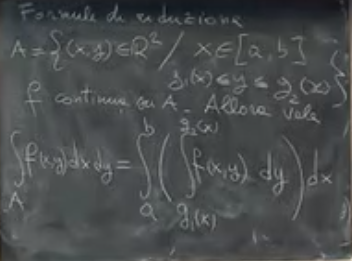 Formule di riduzione
A = {(x,y) ∈ R² / x ∈ [a,b]
g₁(x) ≤ y ≤ g₂(x)}
f continua su A. Allora vale
∫_A f(x,y) dx dy = ∫_a^b ( ∫_{g₁(x)}^{g₂(x)} f(x,y) dy ) dx